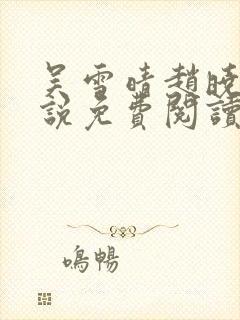 吴雪晴趙曉
說免費閱讀
鳴暢